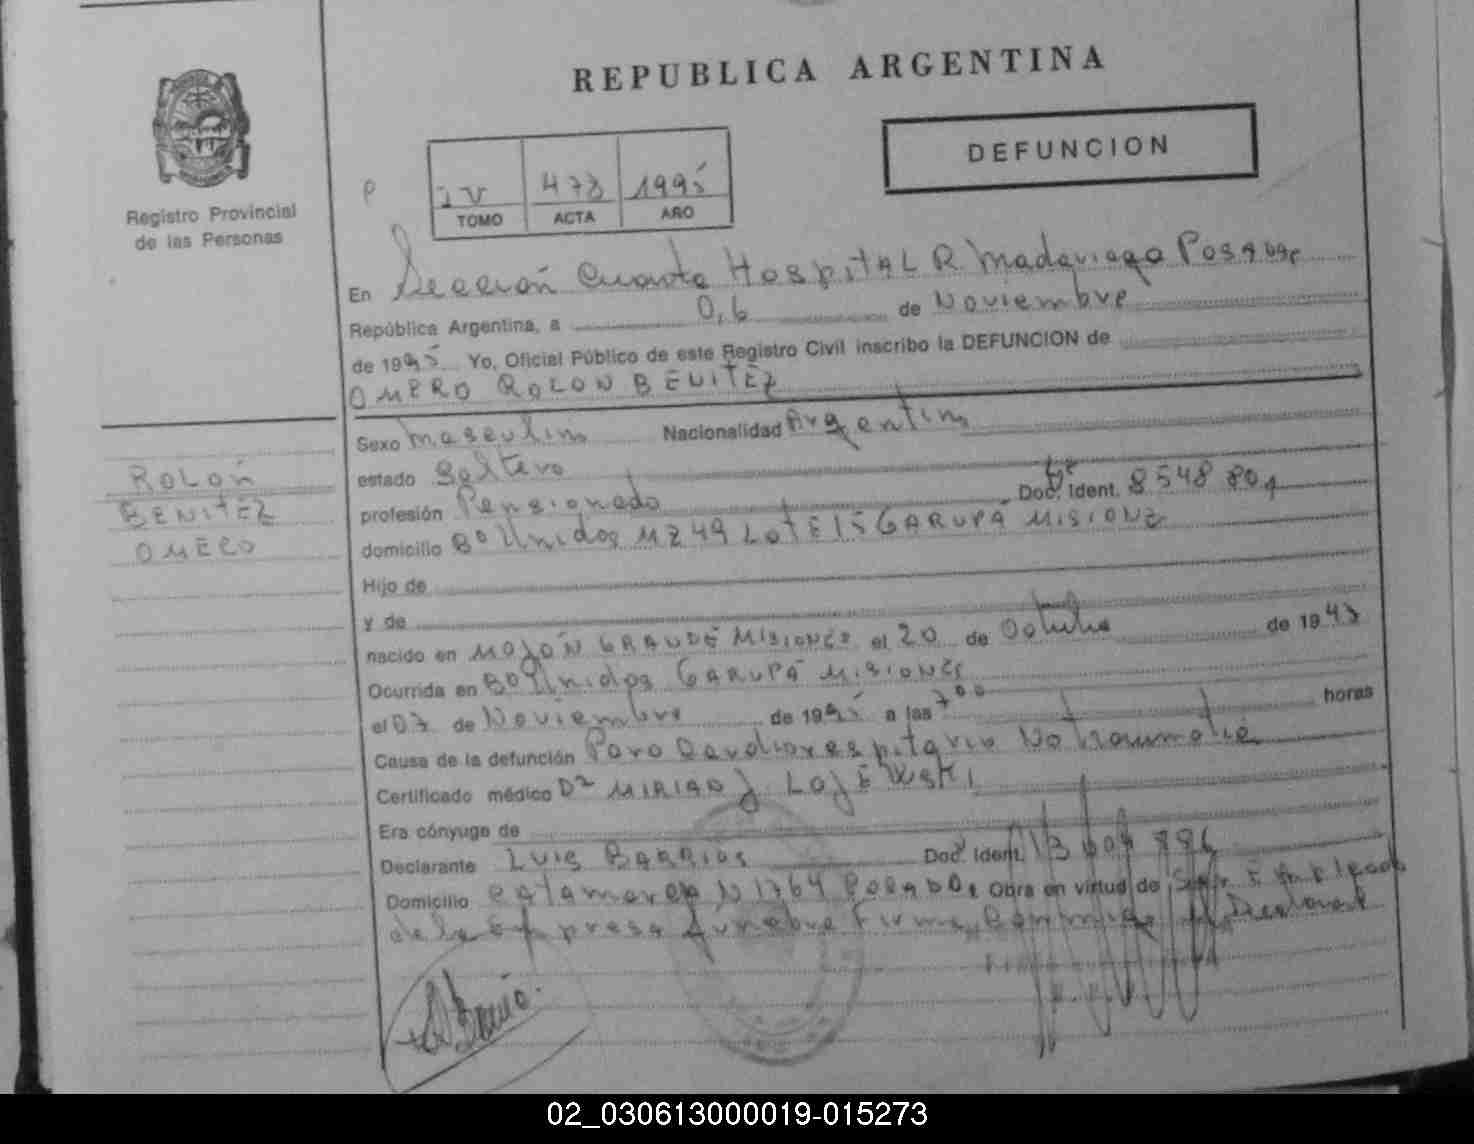 REPUBLICA ARGENTINA
DEFUNCION
Registro Provincial
de las Personas
P
IV 478 1995
TOMO ACTA AÑO
En Sección Cuarta Hospital R. Madariaga Posadas
República Argentina, a 0,6 de Noviembre
de 1995 Yo, Oficial Público de este Registro Civil inscribo la DEFUNCION de
OMERO ROLON BENITEZ
Sexo masculino Nacionalidad Argentino
estado Soltero
profesión Pensionado Doc. Ident. 8548 80
domicilio Bº Unidos MZ 49 LOTE 15 GARUPÁ MISIONE
Hijo de
y de
nacido en MOJÓN GRANDE MISIONES el 20 de Octubre de 194
Ocurrida en Bº Unidos GARUPÁ MISIONES
el 03 de Noviembre de 1995 a las 7 00 horas
Causa de la defunción Paro Cardiorespitario No traumatic
Certificado médico Dª MIRIAN J. LOJEWSKI
Era cónyuge de
Declarante LUIS BARRIOS Doc. Ident. 13 886
Domicilio Catamarca N 1764 POSADAS Obra en virtud de Ser Empleado
de la Empresa Funebre Firma Declarante
ROLON
BENITEZ
OMERO
02_030613000019-015273